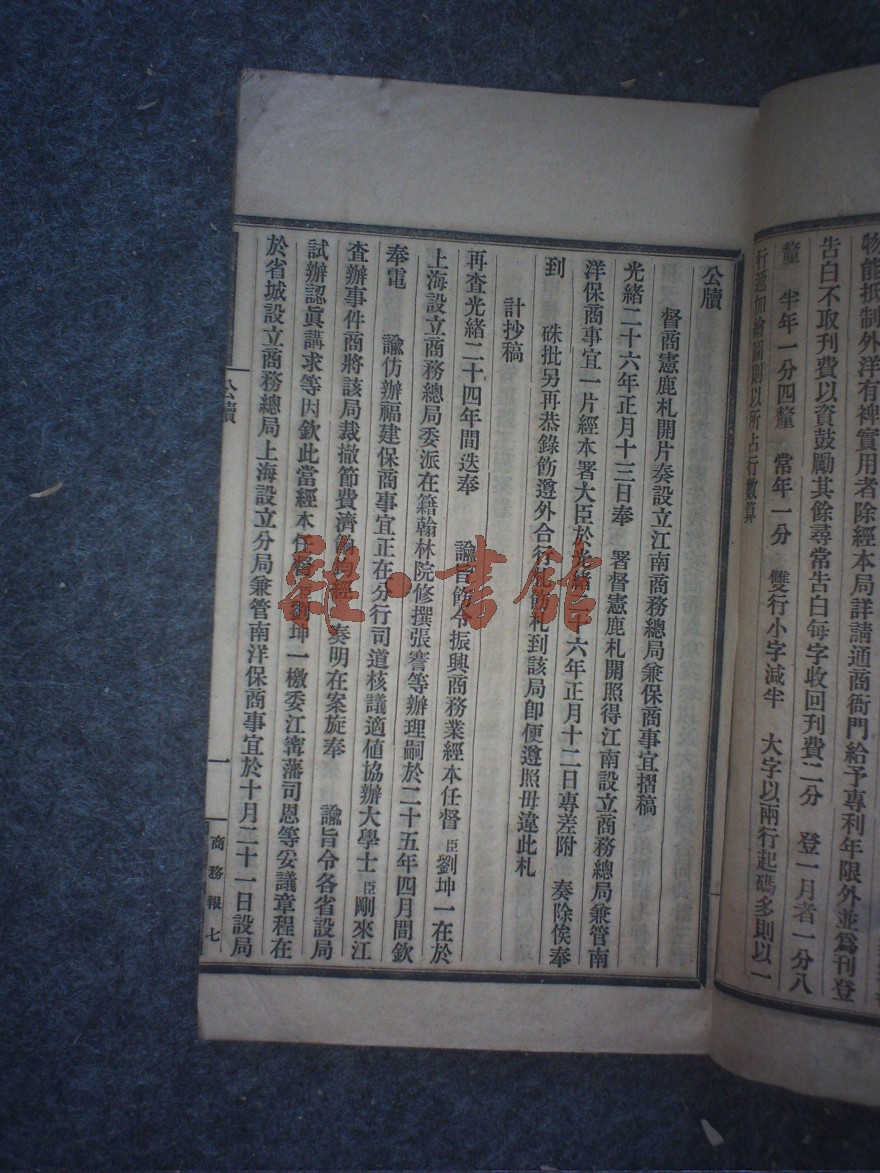 物能抵制外洋有裨實用者除經本局詳請通商衙門給予專利年限外並爲刊登
告白不取刊費以資鼓勵其餘尋常告白每字收回刊費二分 登一月者一分八
釐 半年一分四釐 常年一分 雙行小字減半 大字以兩行起碼多則以一
行遞加繪圖則以所占行數算
公牘
督商憲鹿札開片奏設立江南商務總局兼保商事宜摺稿
光緒二十六年正月十三日奉 署督憲鹿札開照得江南設立商務總局兼管南
洋保商事宜一片經本署大臣於光緒二十六年正月十二日專差附 奏除俟奉
到 硃批另再恭錄飭遵外合行抄飭札到該局卽便遵照毋違此札
計抄稿
再查光緒二十四年間迭奉 諭旨飭令振興商務業經本任督臣劉坤一在於
上海設立商務總局委派在籍翰林院修撰張謇等辦理嗣於二十五年四月間欽
奉電 諭仿辦福建保商事宜正在分行司道核議適値協辦大學士臣剛來江
查辦事件商將該局裁撤節費濟餉 奏明在案旋奉 諭旨令各省設局
試辦認眞講求等因欽此當經本任督臣劉坤一檄委江甯藩司恩等妥議章程在
於省城設立商務總局上海設立分局兼管南洋保商事宜於十月二十一日設局
公牘
一
商務報七
雜·書館